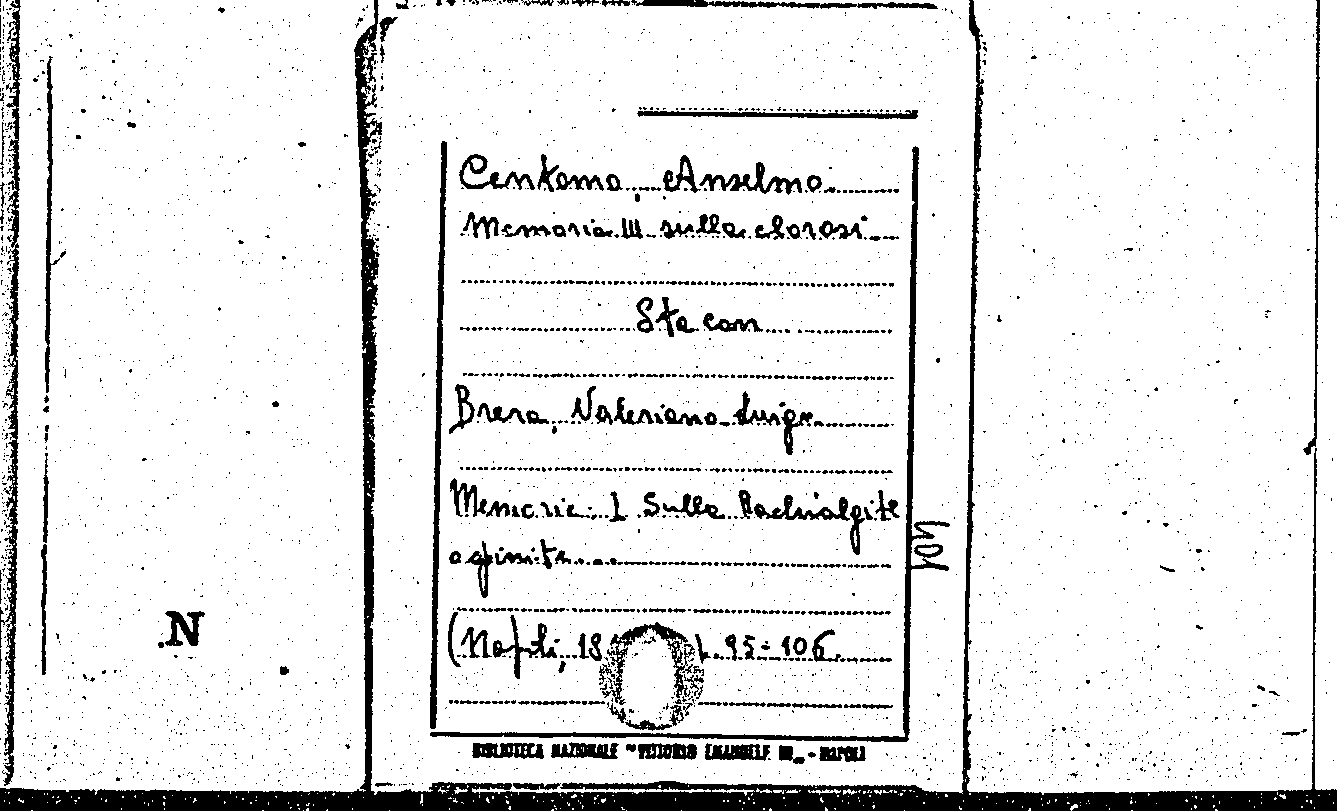 Centomo, Anselmo.
Memoria III sulla clorosi
Sta con
Brera, Valeriano Luigi
Memorie: I Sulla Rachialgite
e affinite....
(Napoli, 18 95-106.
401
.N
BIBLIOTECA NAZIONALE "VITTORIO EMANUELE III" - NAPOLI